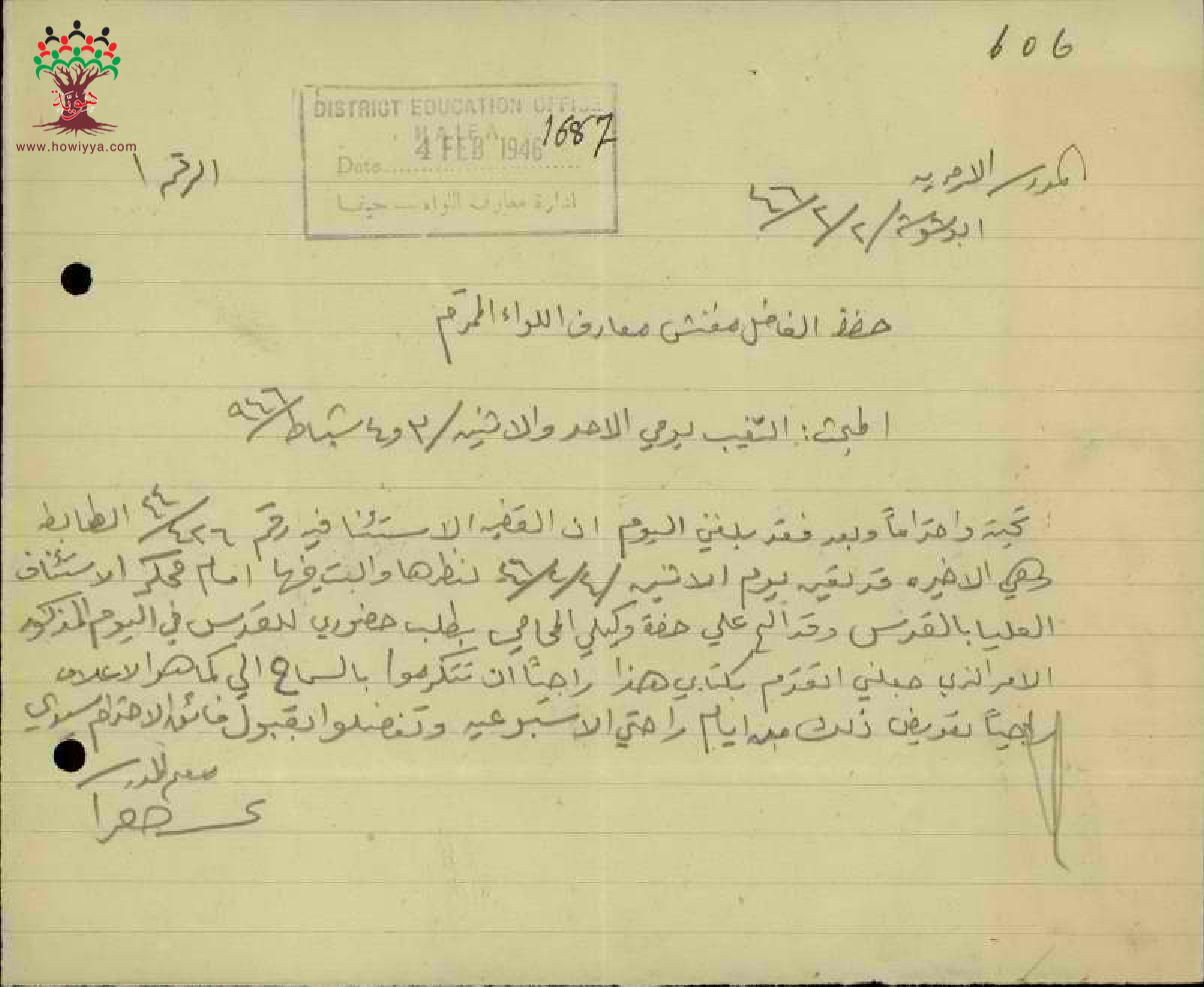 606
هوية
www.howiyya.com
DISTRICT EDUCATION OFFICE
HAIFA
1687
4 FEB 1946
Date
ادارة معارف اللواء — حيفا
الرقم ١
المدرسة الاميرية
ابو شوشة / ٢/٢/٤٦
حضرة الفاضل مفتش معارف اللواء المحترم
المبحث: التغيب يومي الاحد والاثنين / ٣ و٤ شباط/٩٤٦
تحية واحتراماً وبعد فقد بلغني اليوم ان القضيه الاستئنافيه رقم ٤٢٦/٤٤
وهي الاخيره قد تعين يوم الاثنين ٤/٢/٤٦ لنظرها والبت فيها امام محكمة الاستئناف
العليا بالقدس وقد الح علي حضرة وكيلي المحامي بطلب حضوري للقدس في اليوم المذكور
الامر الذي جعلني اتقدم بكتابي هذا راجياً ان تتكرموا بالسماح الي كما هو الاعلاه
راجياً تعويض ذلك من ايام راحتي الاسبوعيه وتفضلوا بقبول فائق الاحترام سيدي
معلم المدرسة